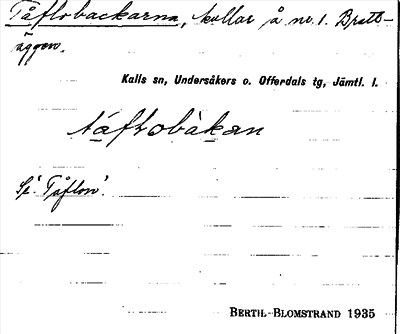 Tåflobackarna, kullar å nr. 1. Bratt-
äggen.
Kalls sn, Undersåkers o. Offerdals tg, Jämtl. l.
táflobàkan
Se 'Tåflon'.
BERTIL BLOMSTRAND 1935